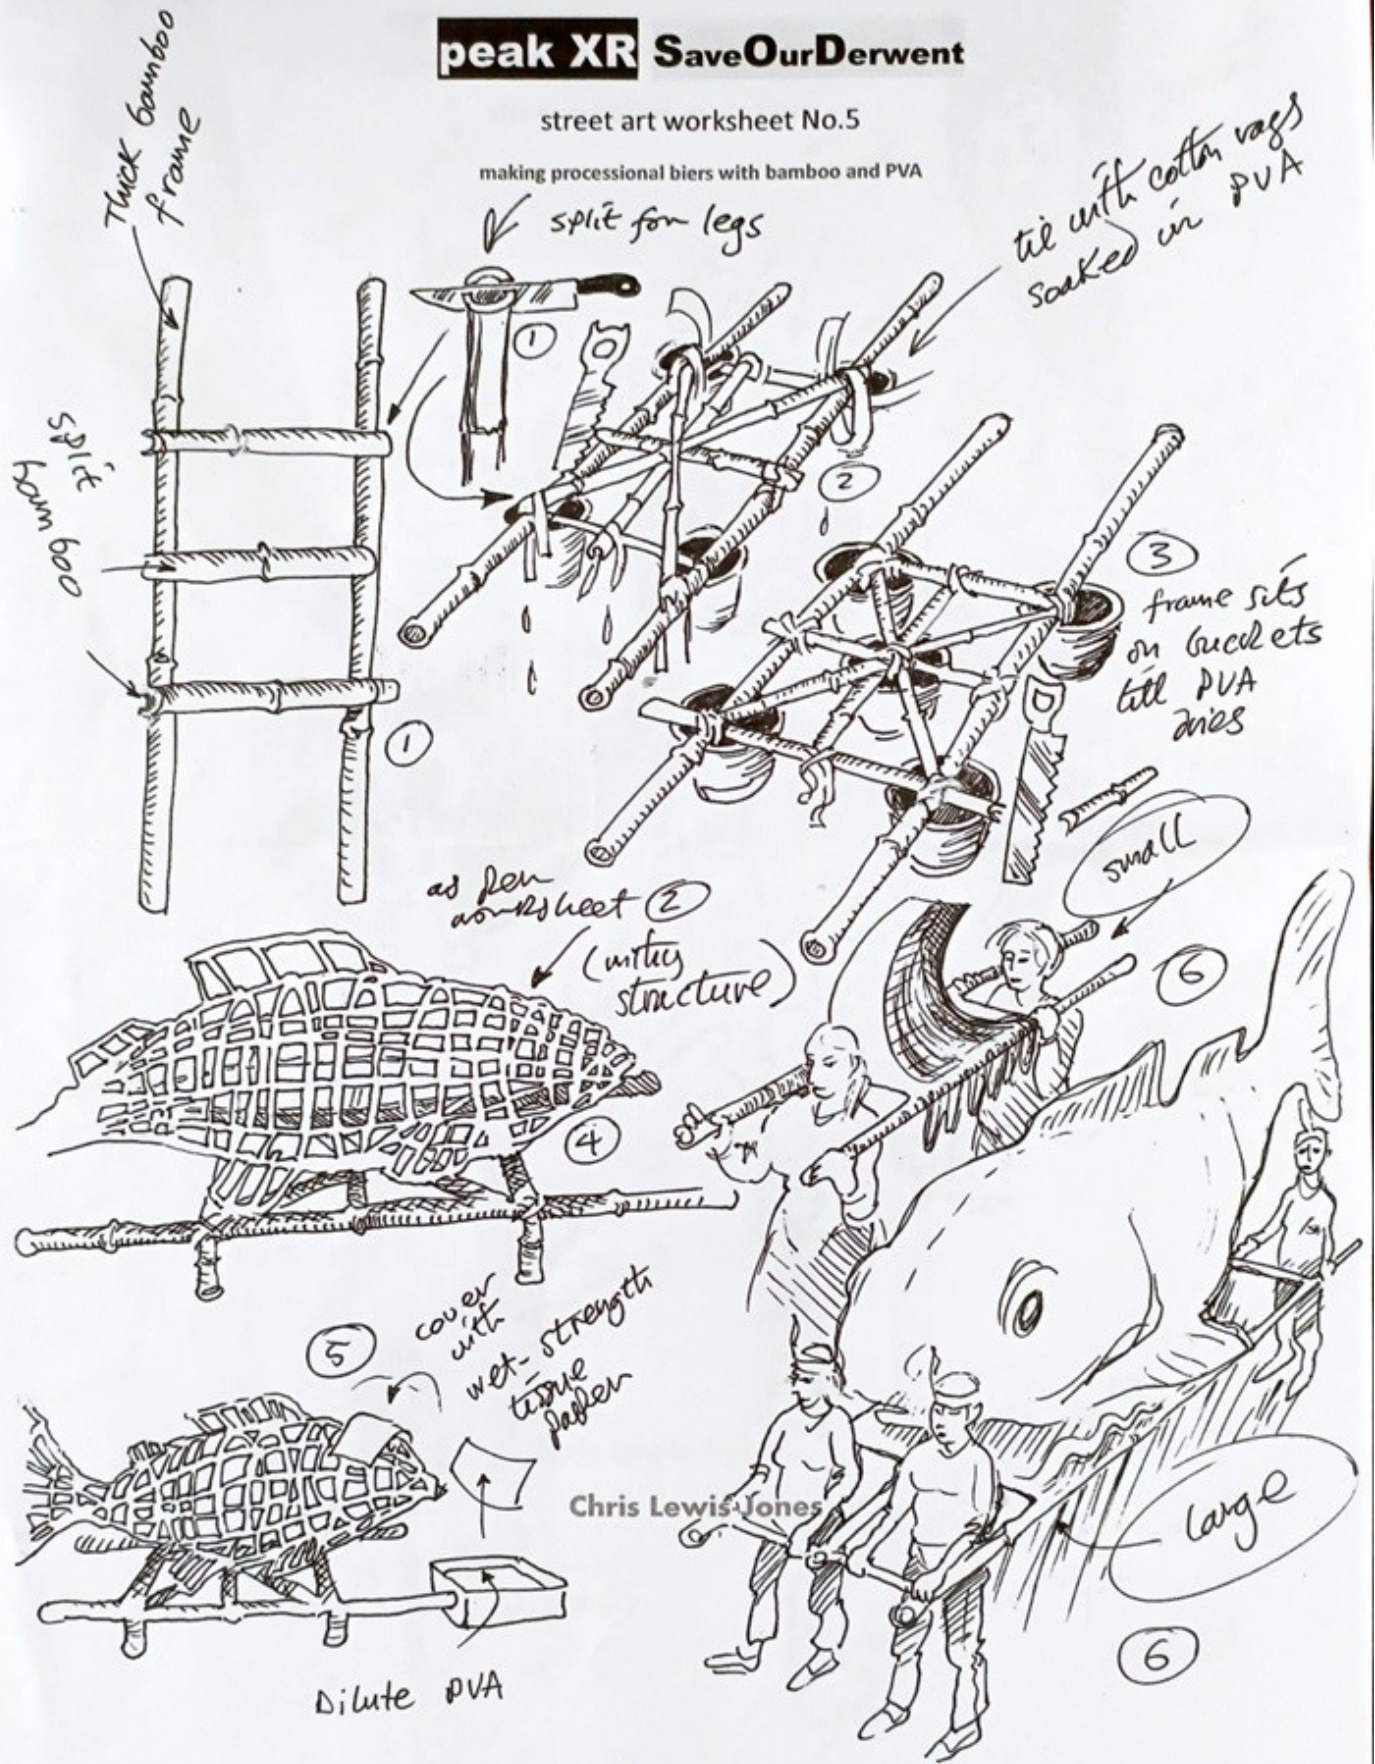 peak XR SaveOurDerwent
street art worksheet No.5
making processional biers with bamboo and PVA
Thick bamboo
frame
split for legs
tie with cotton rags
soaked in PVA
1
split
bamboo
2
3
frame sits
on buckets
till PVA
dries
1
small
as per
worksheet 2
(withy
structure)
6
4
5
cover
with
wet-strength
tissue
paper
Chris Lewis-Jones
large
6
Dilute PVA